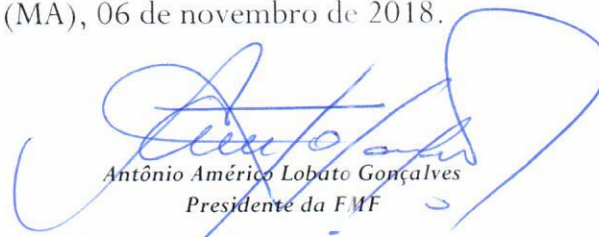 (MA), 06 de novembro de 2018.
Antônio Américo Lobato Gonçalves
Presidente da FMF